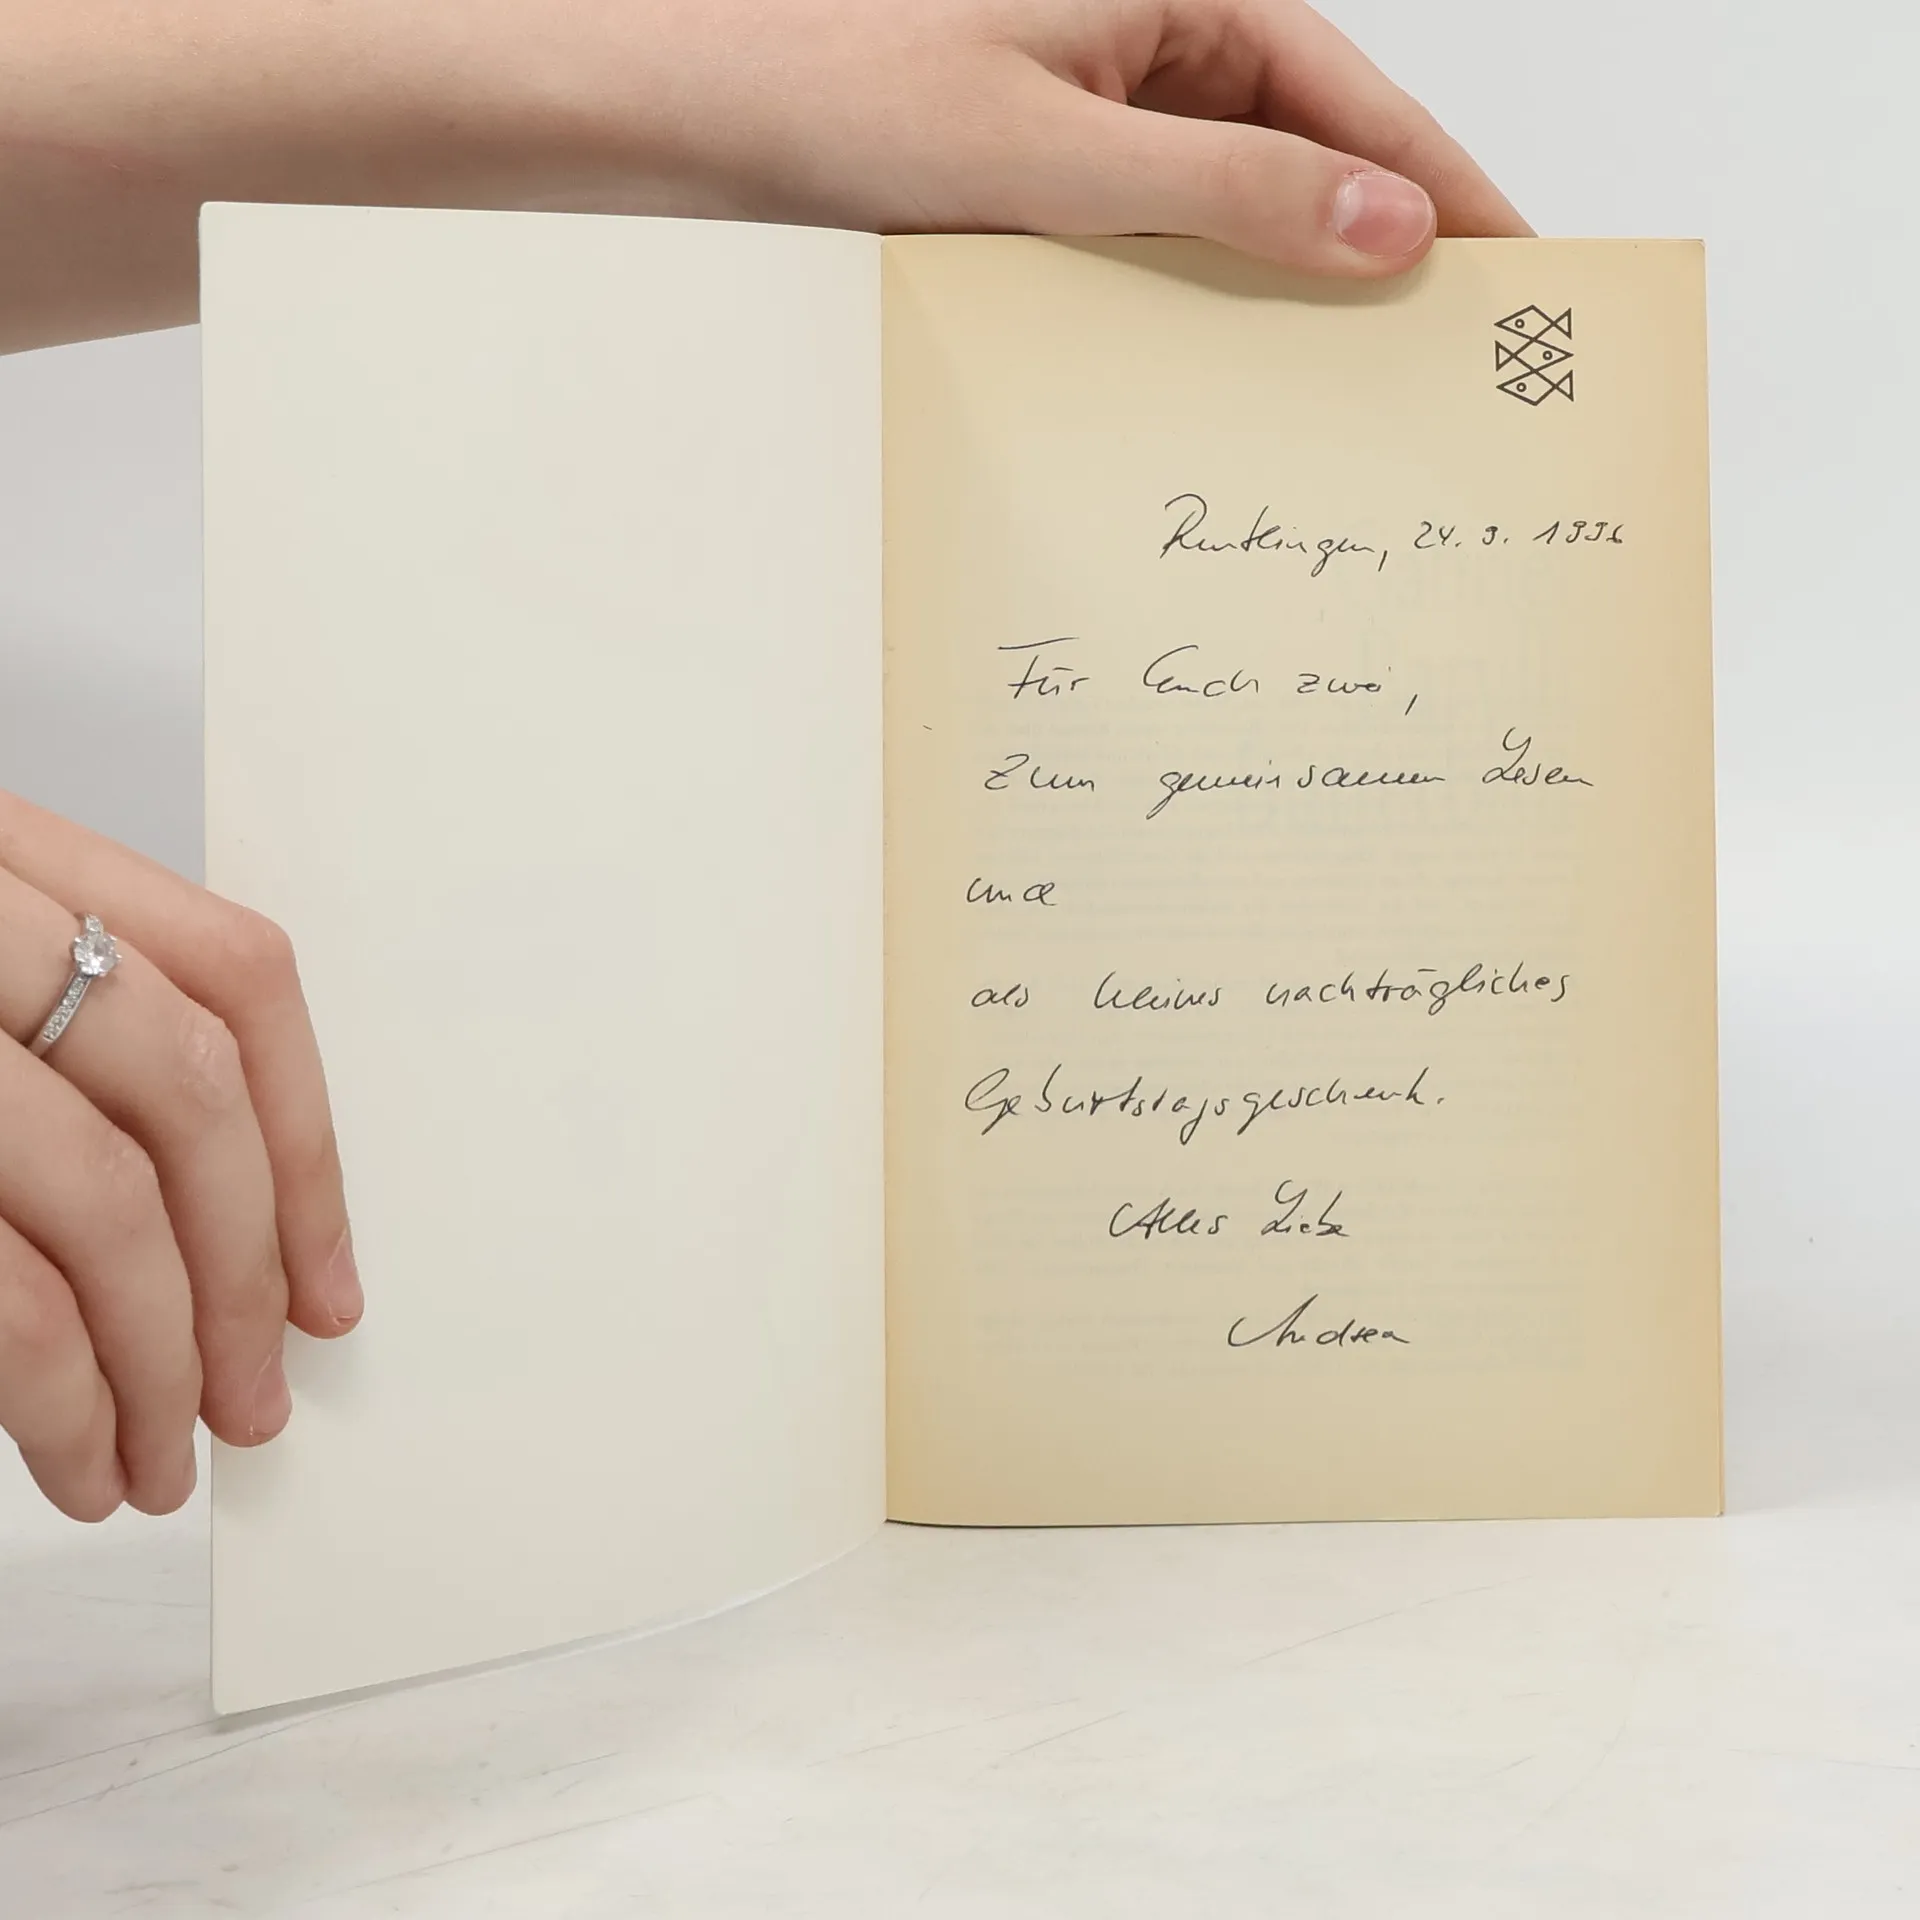 Reutlingen, 24. 9. 1996
Für Euch zwei,
zum gemeinsamen Lesen
und
als kleines nachträgliches
Geburtstagsgeschenk.
Alles Liebe
Andrea